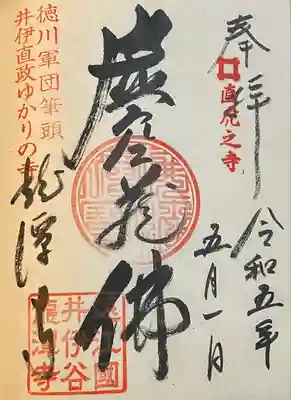 奉拝
直虎之寺
令和五年
五月一日
佛
徳川軍団筆頭
井伊直政ゆかりの寺
龍潭寺
遠江國
井伊谷
龍潭寺